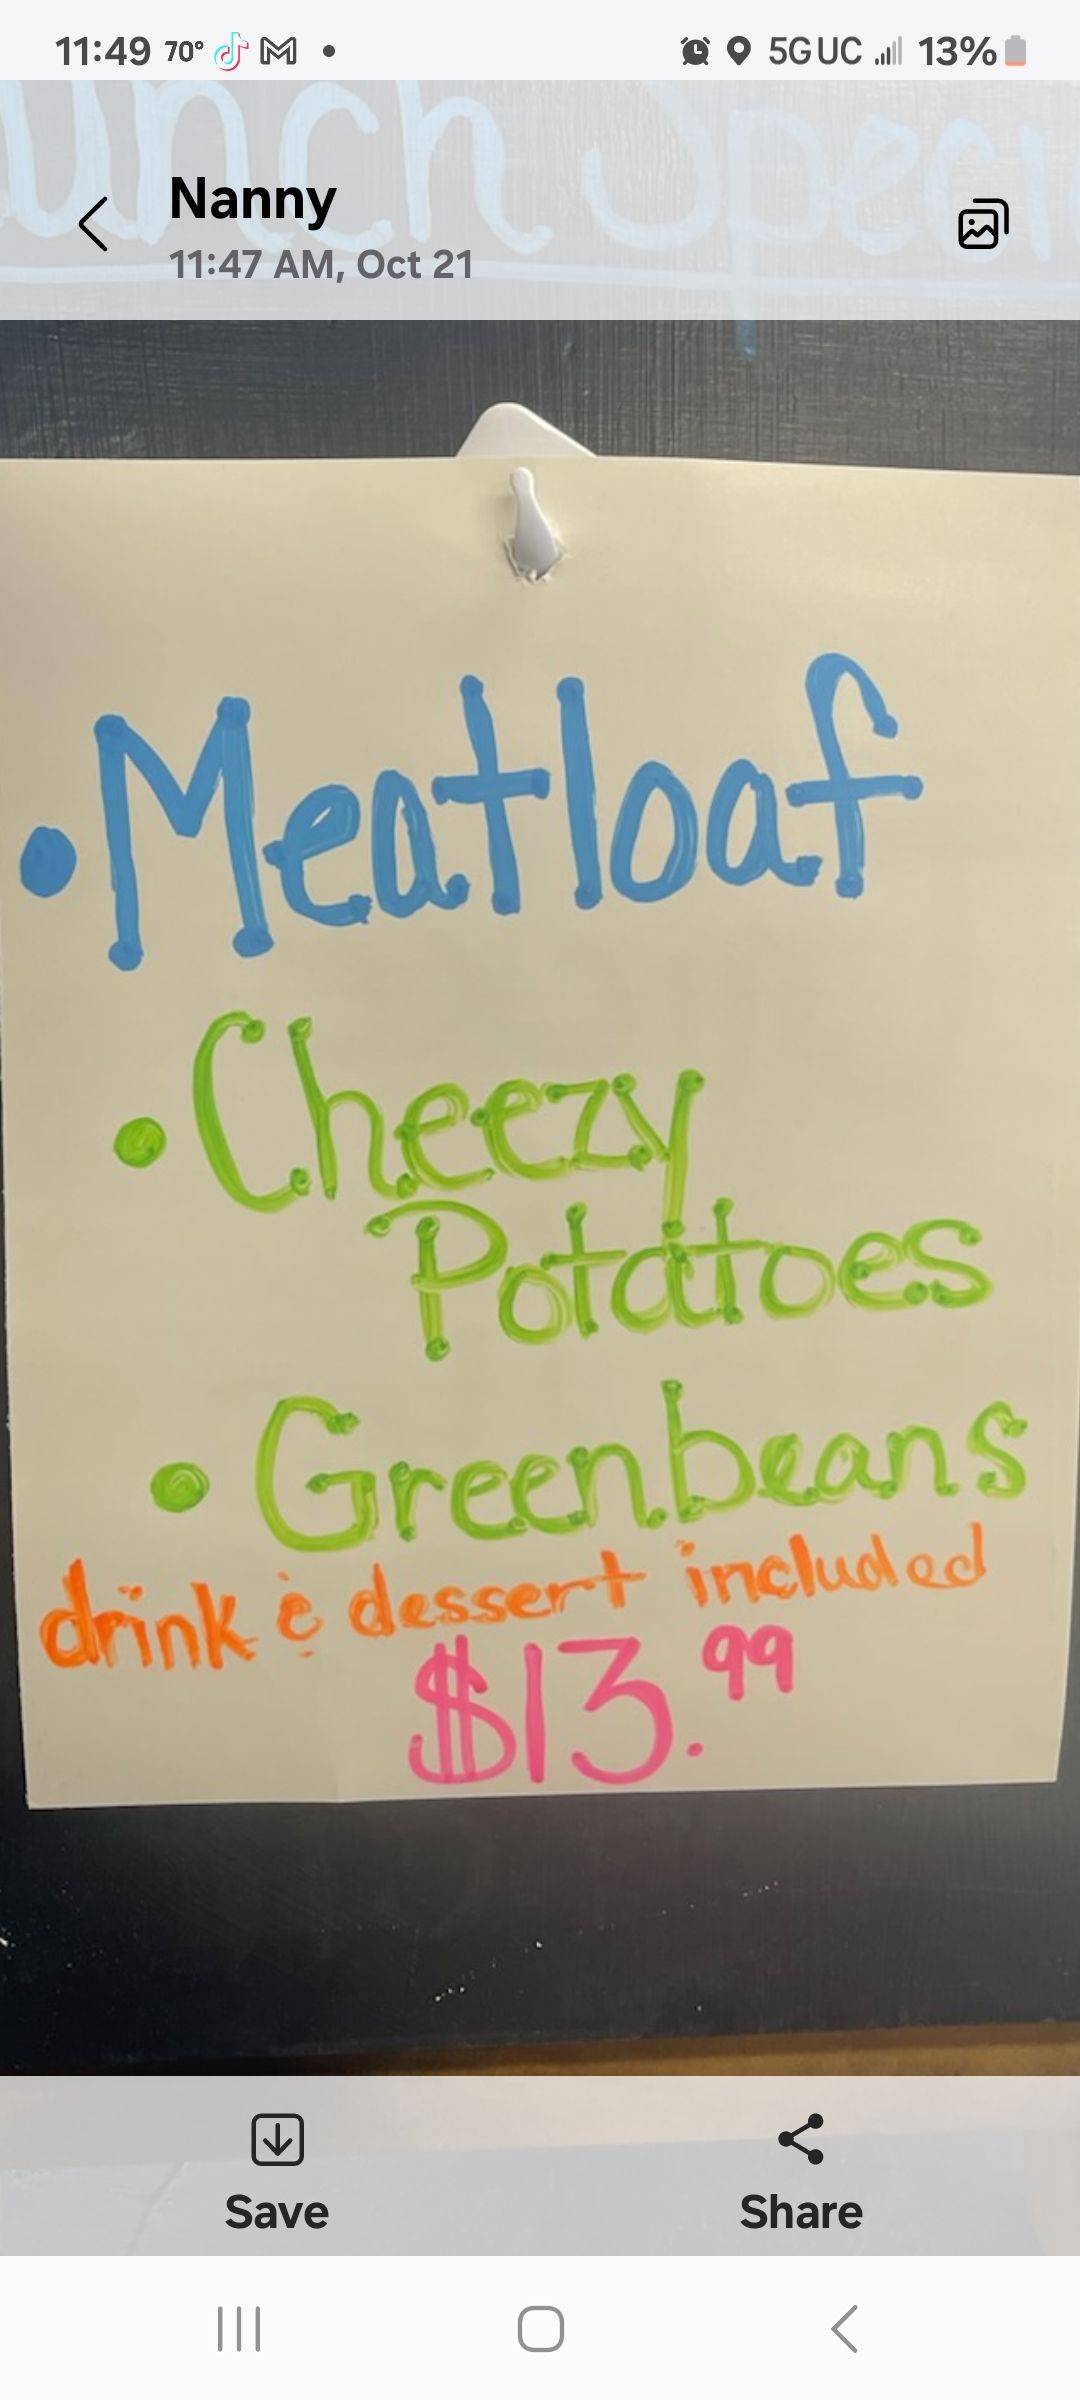 11:49 70° • 5G UC 13%
unch Speci
Nanny
11:47 AM, Oct 21
• Meatloaf
• Cheezy
Potatoes
• Greenbeans
drink & dessert included
$13.99
Save Share